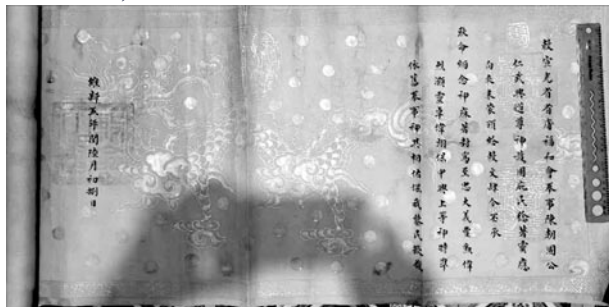 敕宣光省省福和會奉事陳朝國公
仁武興道尊神護國庇民稔著靈應
向來未蒙頒給敕文肆今丕承
耿命緬念神庥著封為至忠大義豐勳偉
烈灝靈卓偉翊保中興上等神特準
依舊奉事神其相佑保我黎民欽哉
維新五年閏陸月初捌日